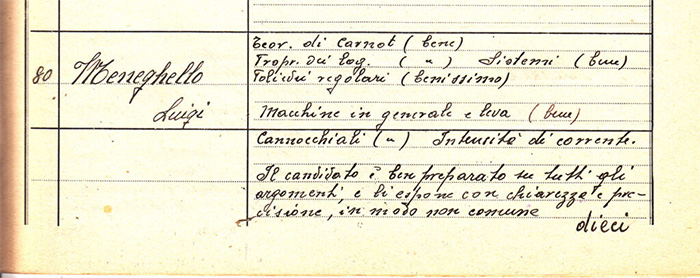 80 Meneghello Luigi
Teor. di Carnot (bene)
Propr. dei log. ( " ) Sistemi (bene)
Poliedri regolari (benissimo)
Macchine in generale e leva (bene)
Cannocchiali ( " ) Intensità di corrente.
Il candidato è ben preparato su tutti gli
argomenti, e li espone con chiarezza e pre-
cisione, in modo non comune
dieci